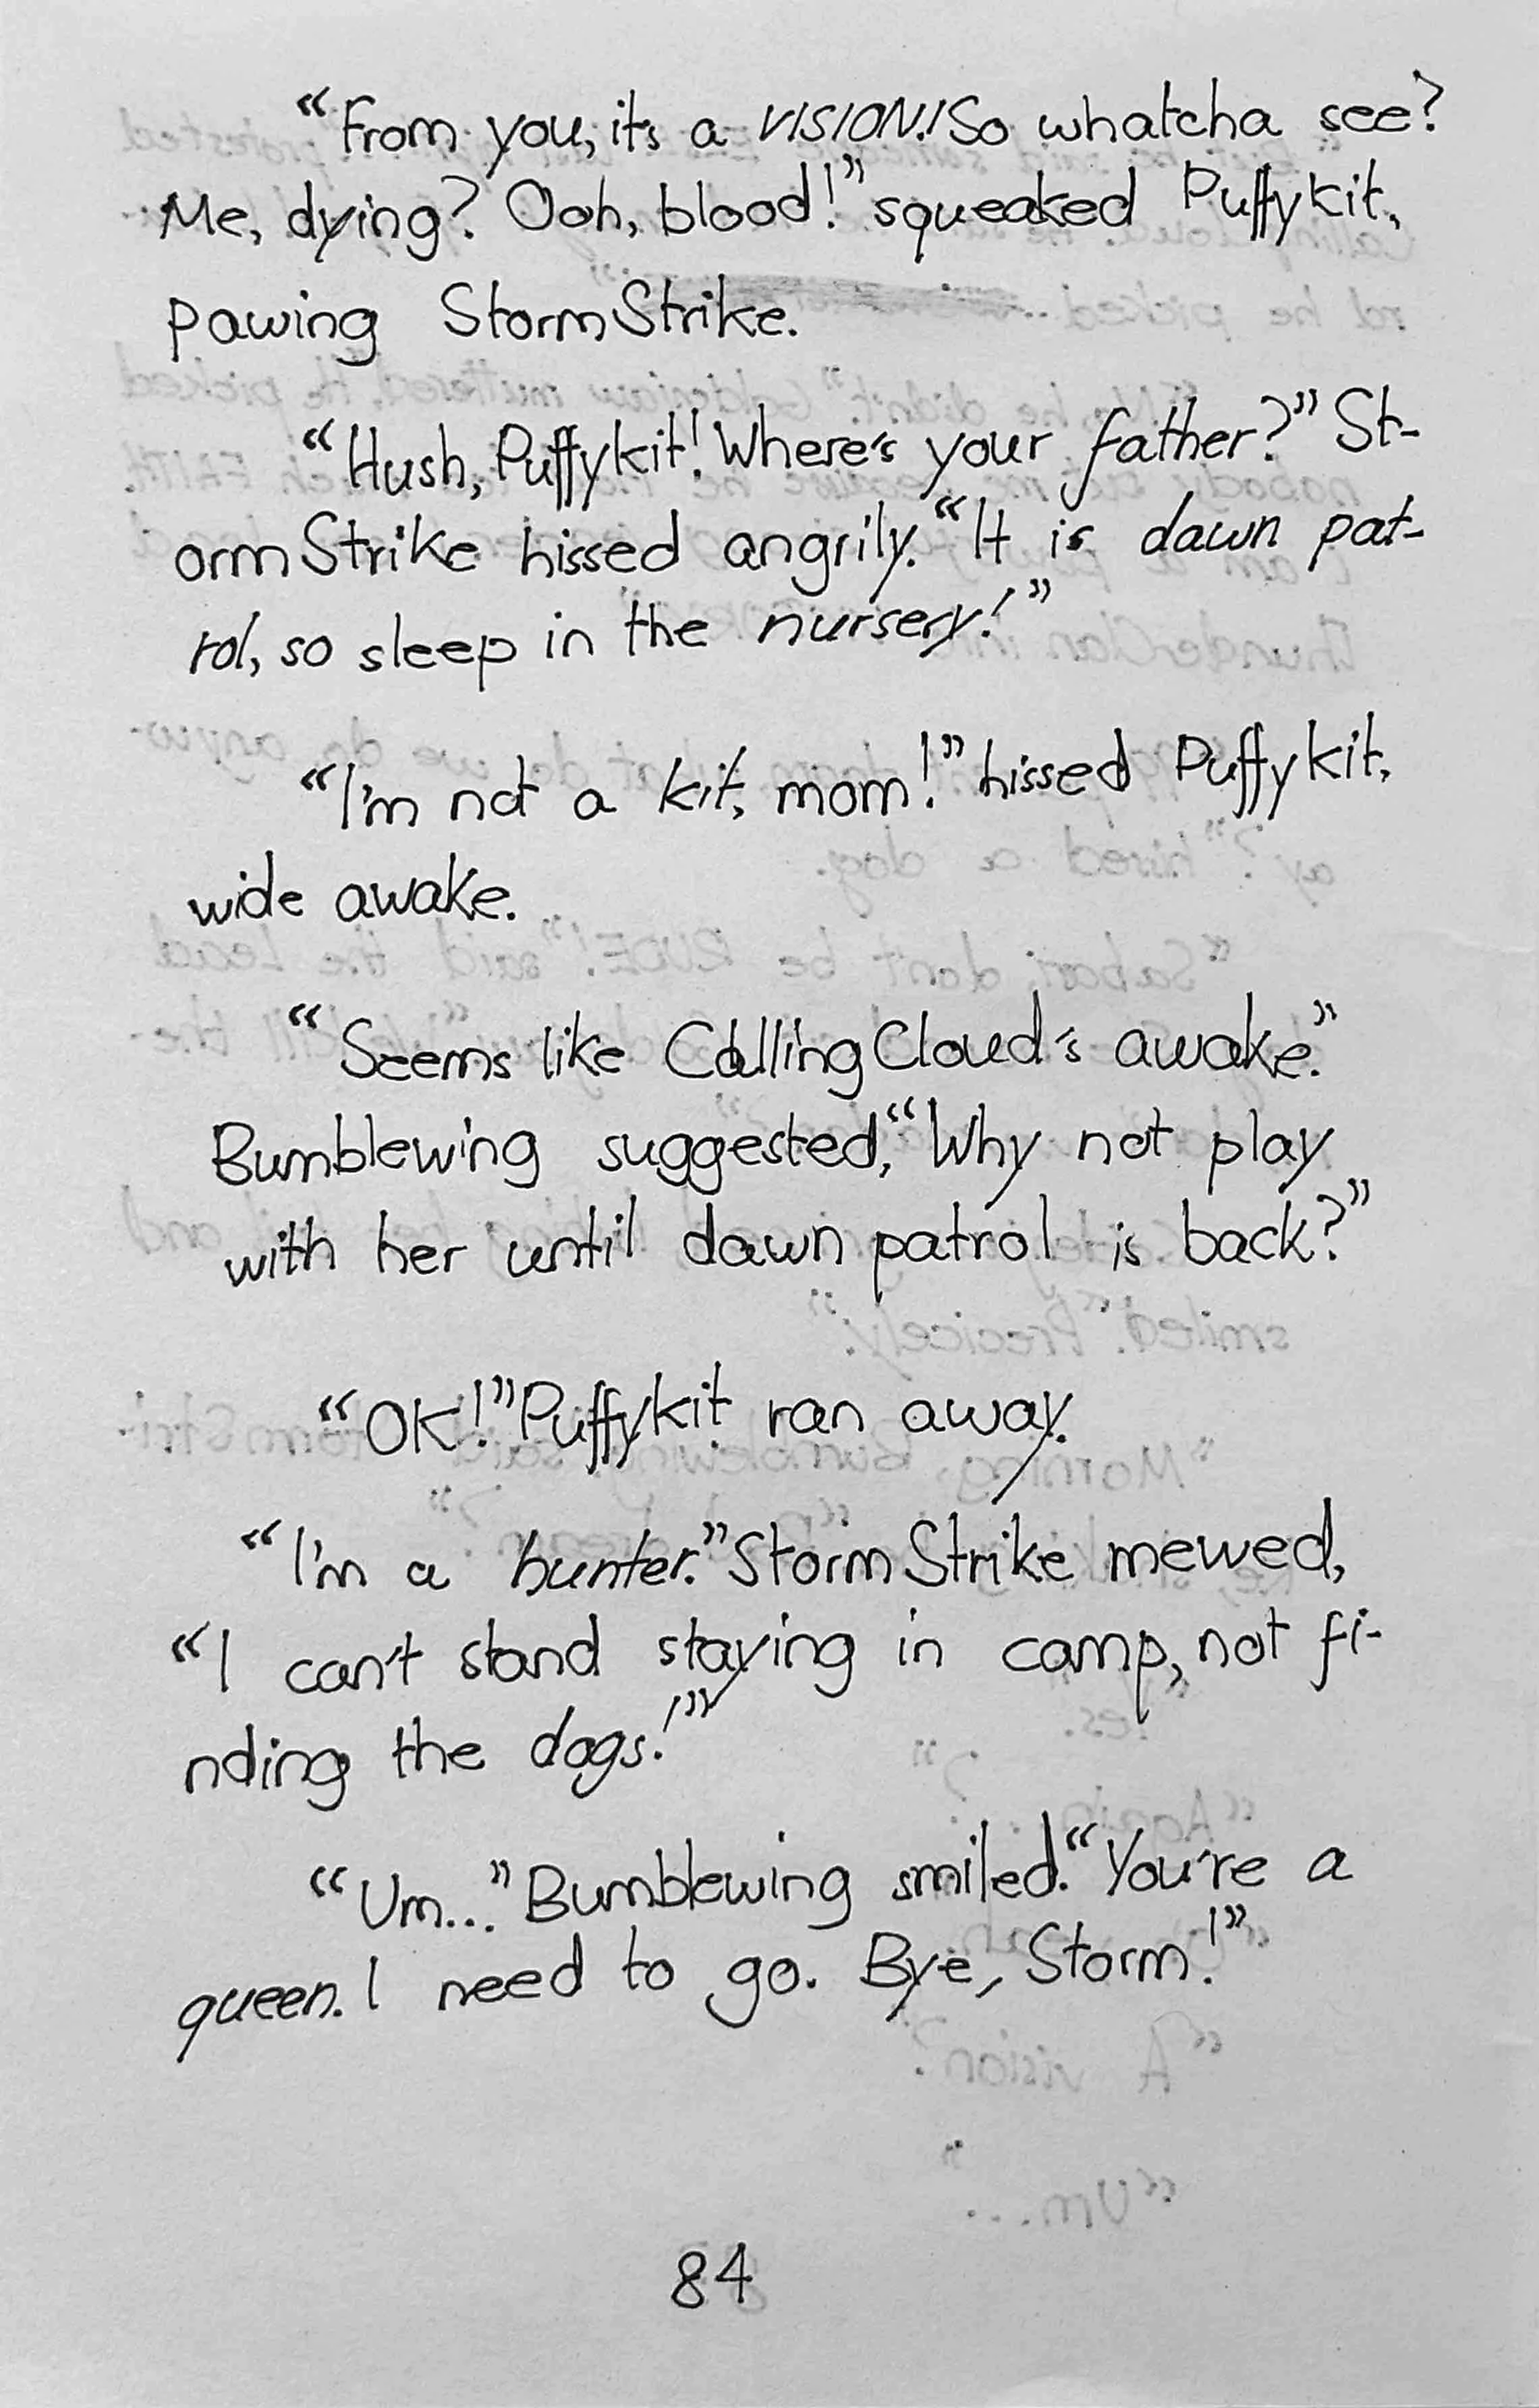 “From you, it's a VISION! So whatcha see?
Me, dying? Ooh, blood!” squeaked Puffykit,
pawing StormStrike.
“Hush, Puffykit! Where's your father?” St-
ormStrike hissed angrily. “It is dawn pat-
rol, so sleep in the nursery!”
“I'm not a kit, mom!” hissed Puffykit,
wide awake.
“Seems like CallingCloud's awake.”
Bumblewing suggested, “Why not play
with her until dawn patrol is back?”
“OK!” Puffykit ran away.
“I'm a hunter.” StormStrike mewed,
“I can't stand staying in camp, not fi-
nding the dogs!”
“Um...” Bumblewing smiled. “You're a
queen. I need to go. Bye, Storm!”
84